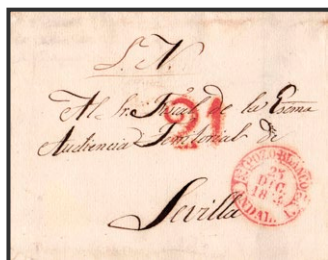 S. N.
Al Sr. Fiscal de la Exma
21
Audiencia Territorial de
Sevilla
27
DIC.